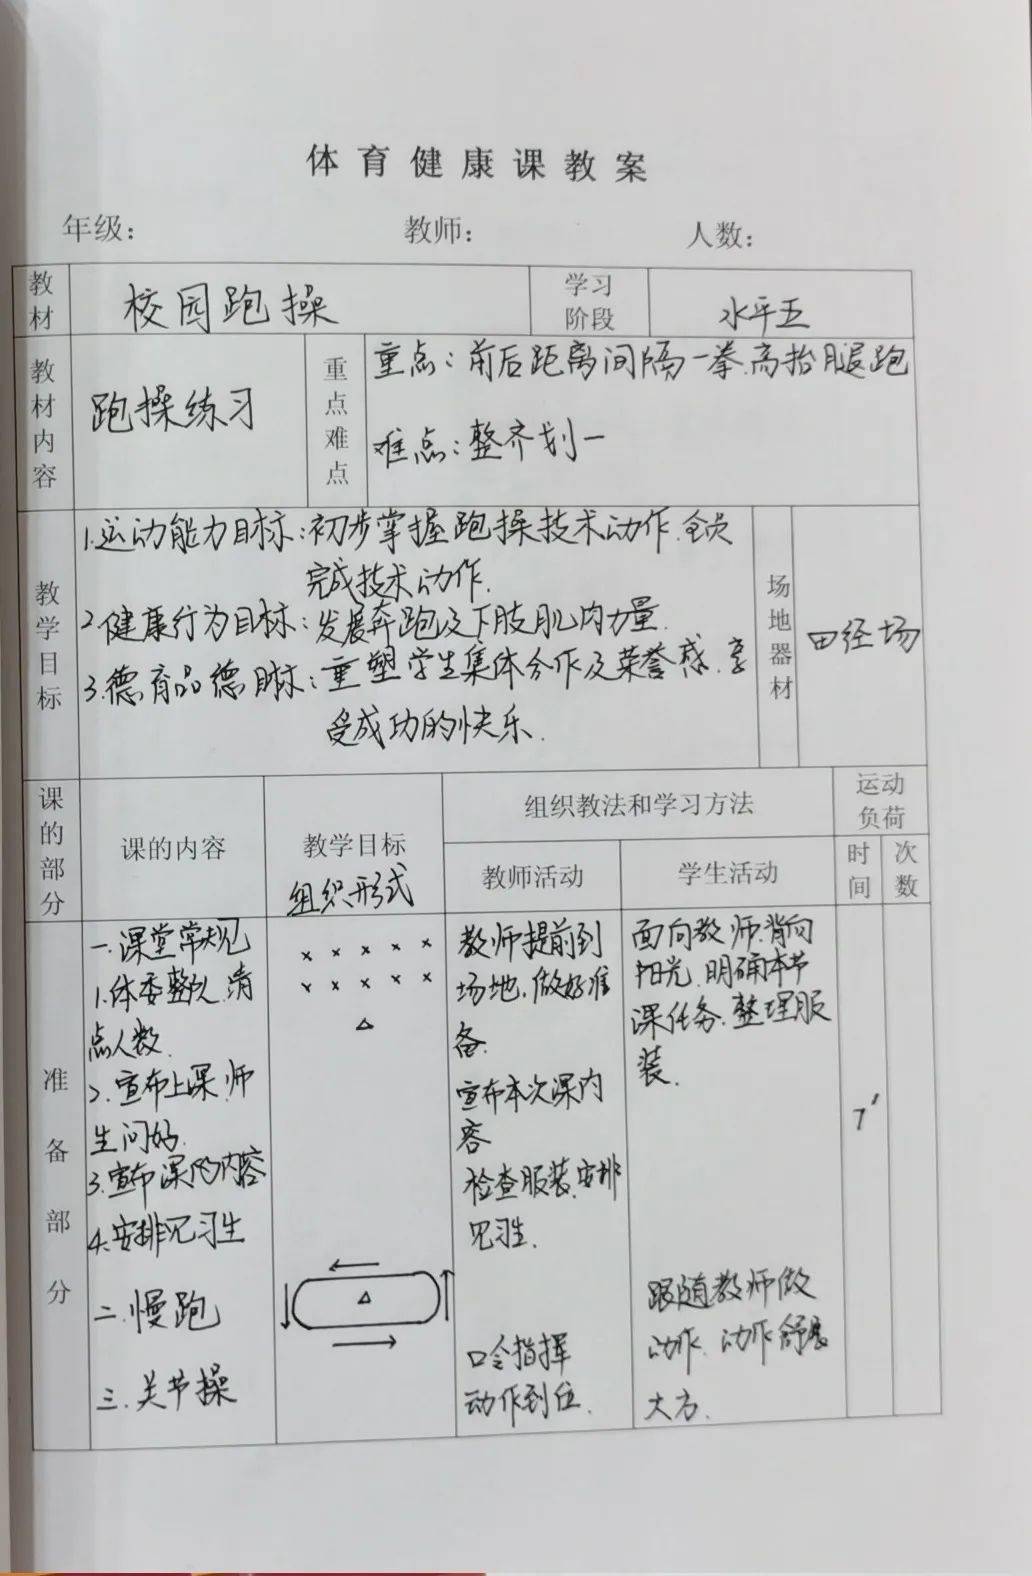 体育健康课教案
年级： 教师： 人数：
教材 校园跑操 学习阶段 水平五
教材内容 跑操练习 重点难点 重点：前后距离间隔一拳.高抬腿跑
难点：整齐划一
教学目标 1.运动能力目标：初步掌握跑操技术动作.全员
完成技术动作.
2.健康行为目标：发展奔跑及下肢肌肉力量.
3.德育品德目标：重塑学生集体合作及荣誉感.享
受成功的快乐.
场地器材 田径场
课的部分 课的内容 教学目标 组织教法和学习方法 运动负荷
组织形式 教师活动 学生活动 时间 次数
准备部分
一.课堂常规
1.体委整队.清
点人数.
2.宣布上课.师
生问好.
3.宣布课的内容
4.安排见习生
二.慢跑
三.关节操
× × × × ×
× × × × ×
△
△
教师提前到
场地.做好准
备.
宣布本次课内
容
检查服装.安排
见习生.
口令指挥
动作到位.
面向教师.背向
阳光.明确本节
课任务.整理服
装.
跟随教师做
动作.动作舒展
大方.
7′